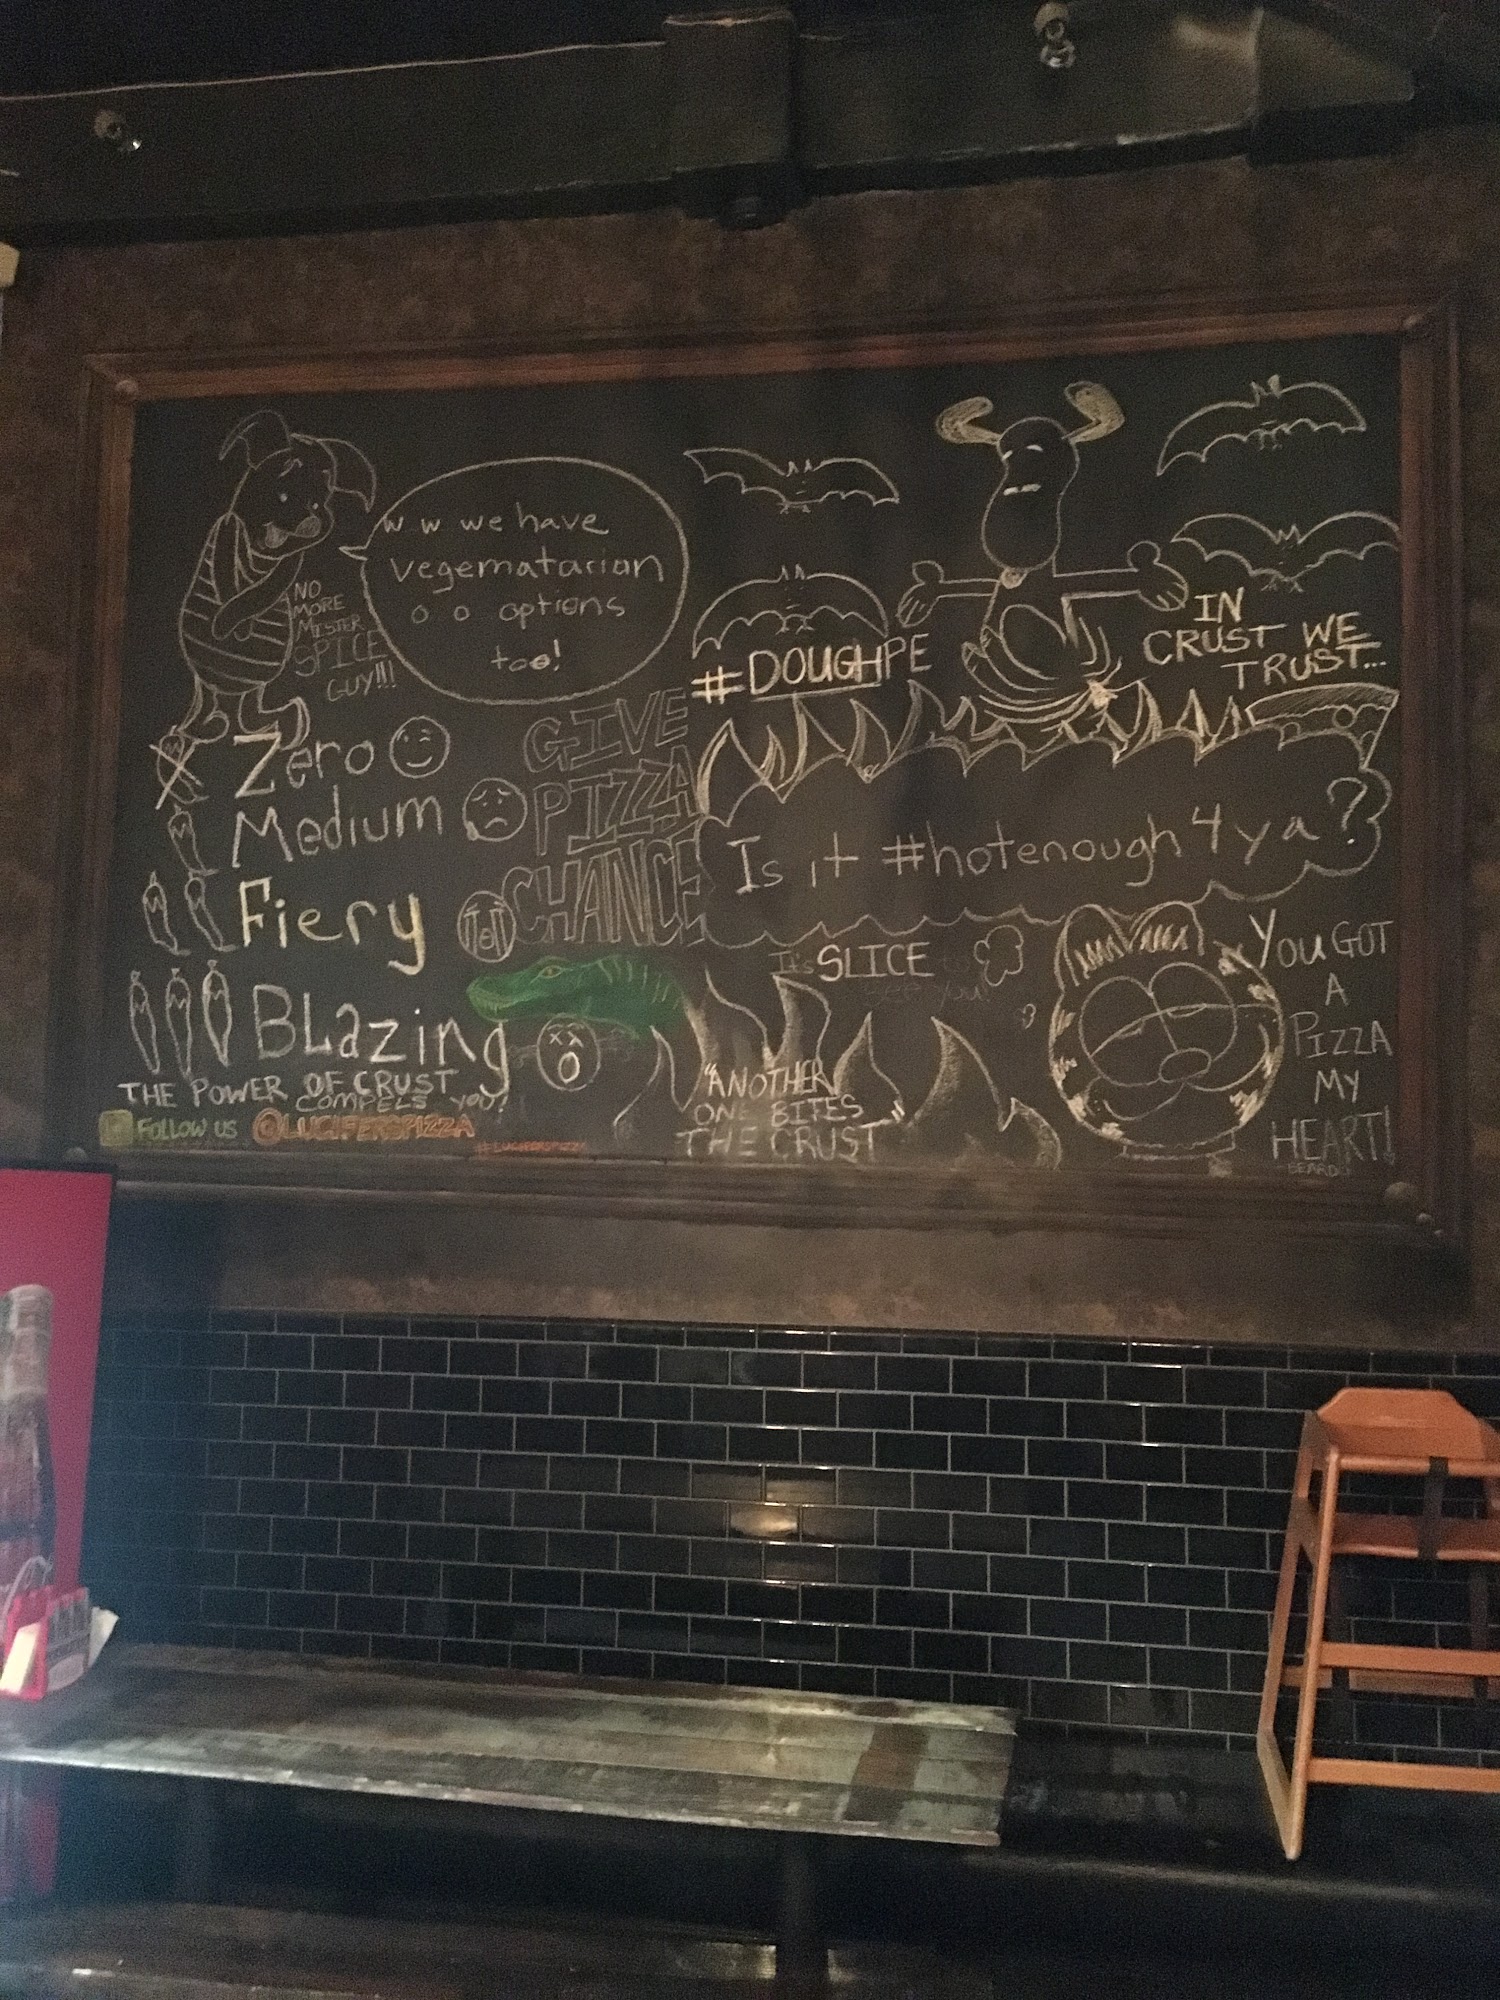 w w we have
vegematarian
o o options
too!
NO
MORE
MISTER
SPICE
GUY!!!
#DOUGHPE
IN
CRUST WE
TRUST...
Zero
Medium
Fiery
BLazing
GIVE
PIZZA
CHANCE
Is it #hotenough4ya?
It's SLICE to
see you!
YOU GOT
A
PIZZA
MY
HEART!
BEARD
"ANOTHER
ONE BITES
THE CRUST"
THE POWER OF CRUST
COMPELS YOU!
FOLLOW US @LUCIFERSPIZZA
#LUCIFERSPIZZA